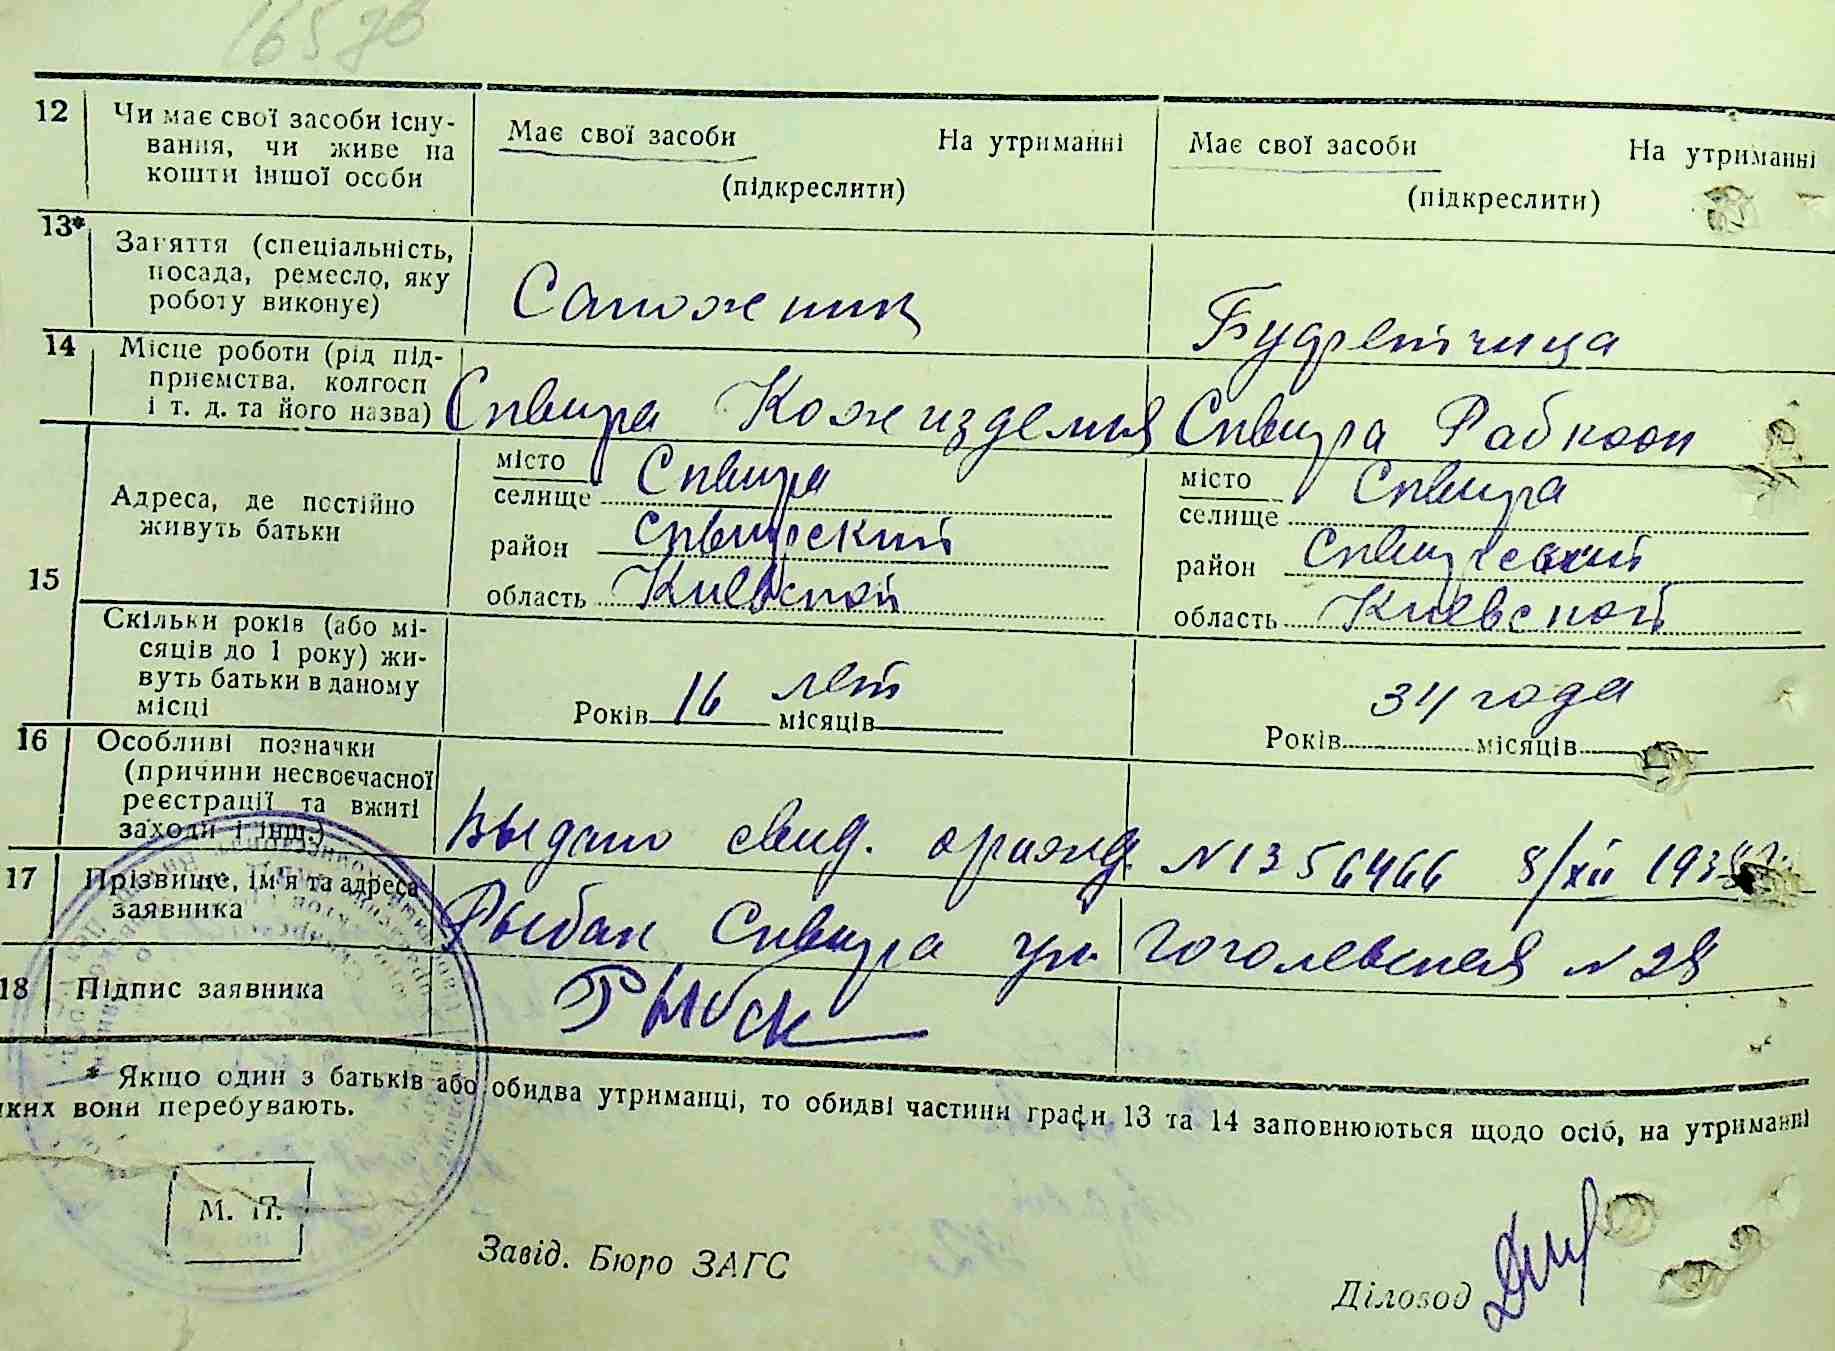 165 зв
12 Чи має свої засоби існу- Має свої засоби На утриманні Має свої засоби На утриманні
вання, чи живе на
кошти іншої особи (підкреслити) (підкреслити)
13* Заняття (спеціальність,
посада, ремесло, яку Сапожник Буфетчица
роботу виконує)
14 Місце роботи (рід під-
приємства, колгосп
і т. д. та його назва) Сквира Кожизделия Сквира Рабкооп
15 Адреса, де постійно місто Сквира місто Сквира
живуть батьки селище селище
район Сквирский район Сквирський
область Киевской область Киевской
Скільки років (або мі-
сяців до 1 року) жи-
вуть батьки в даному 16 лет 34 года
місці Років місяців Років місяців
16 Особливі позначки
(причини несвоєчасної
реєстрації та вжиті
заходи і інш.) Выдано свид. о рожд. N 1356466 8/XII 193
17 Прізвище, ім'я та адреса
заявника Рыбак Сквира ул. Гоголевская N 28
18 Підпис заявника Рыбак
* Якщо один з батьків або обидва утриманці, то обидві частини графи 13 та 14 заповнюються щодо осіб, на утриманні
яких вони перебувають.
М. П.
Завід. Бюро ЗАГС
Діловод